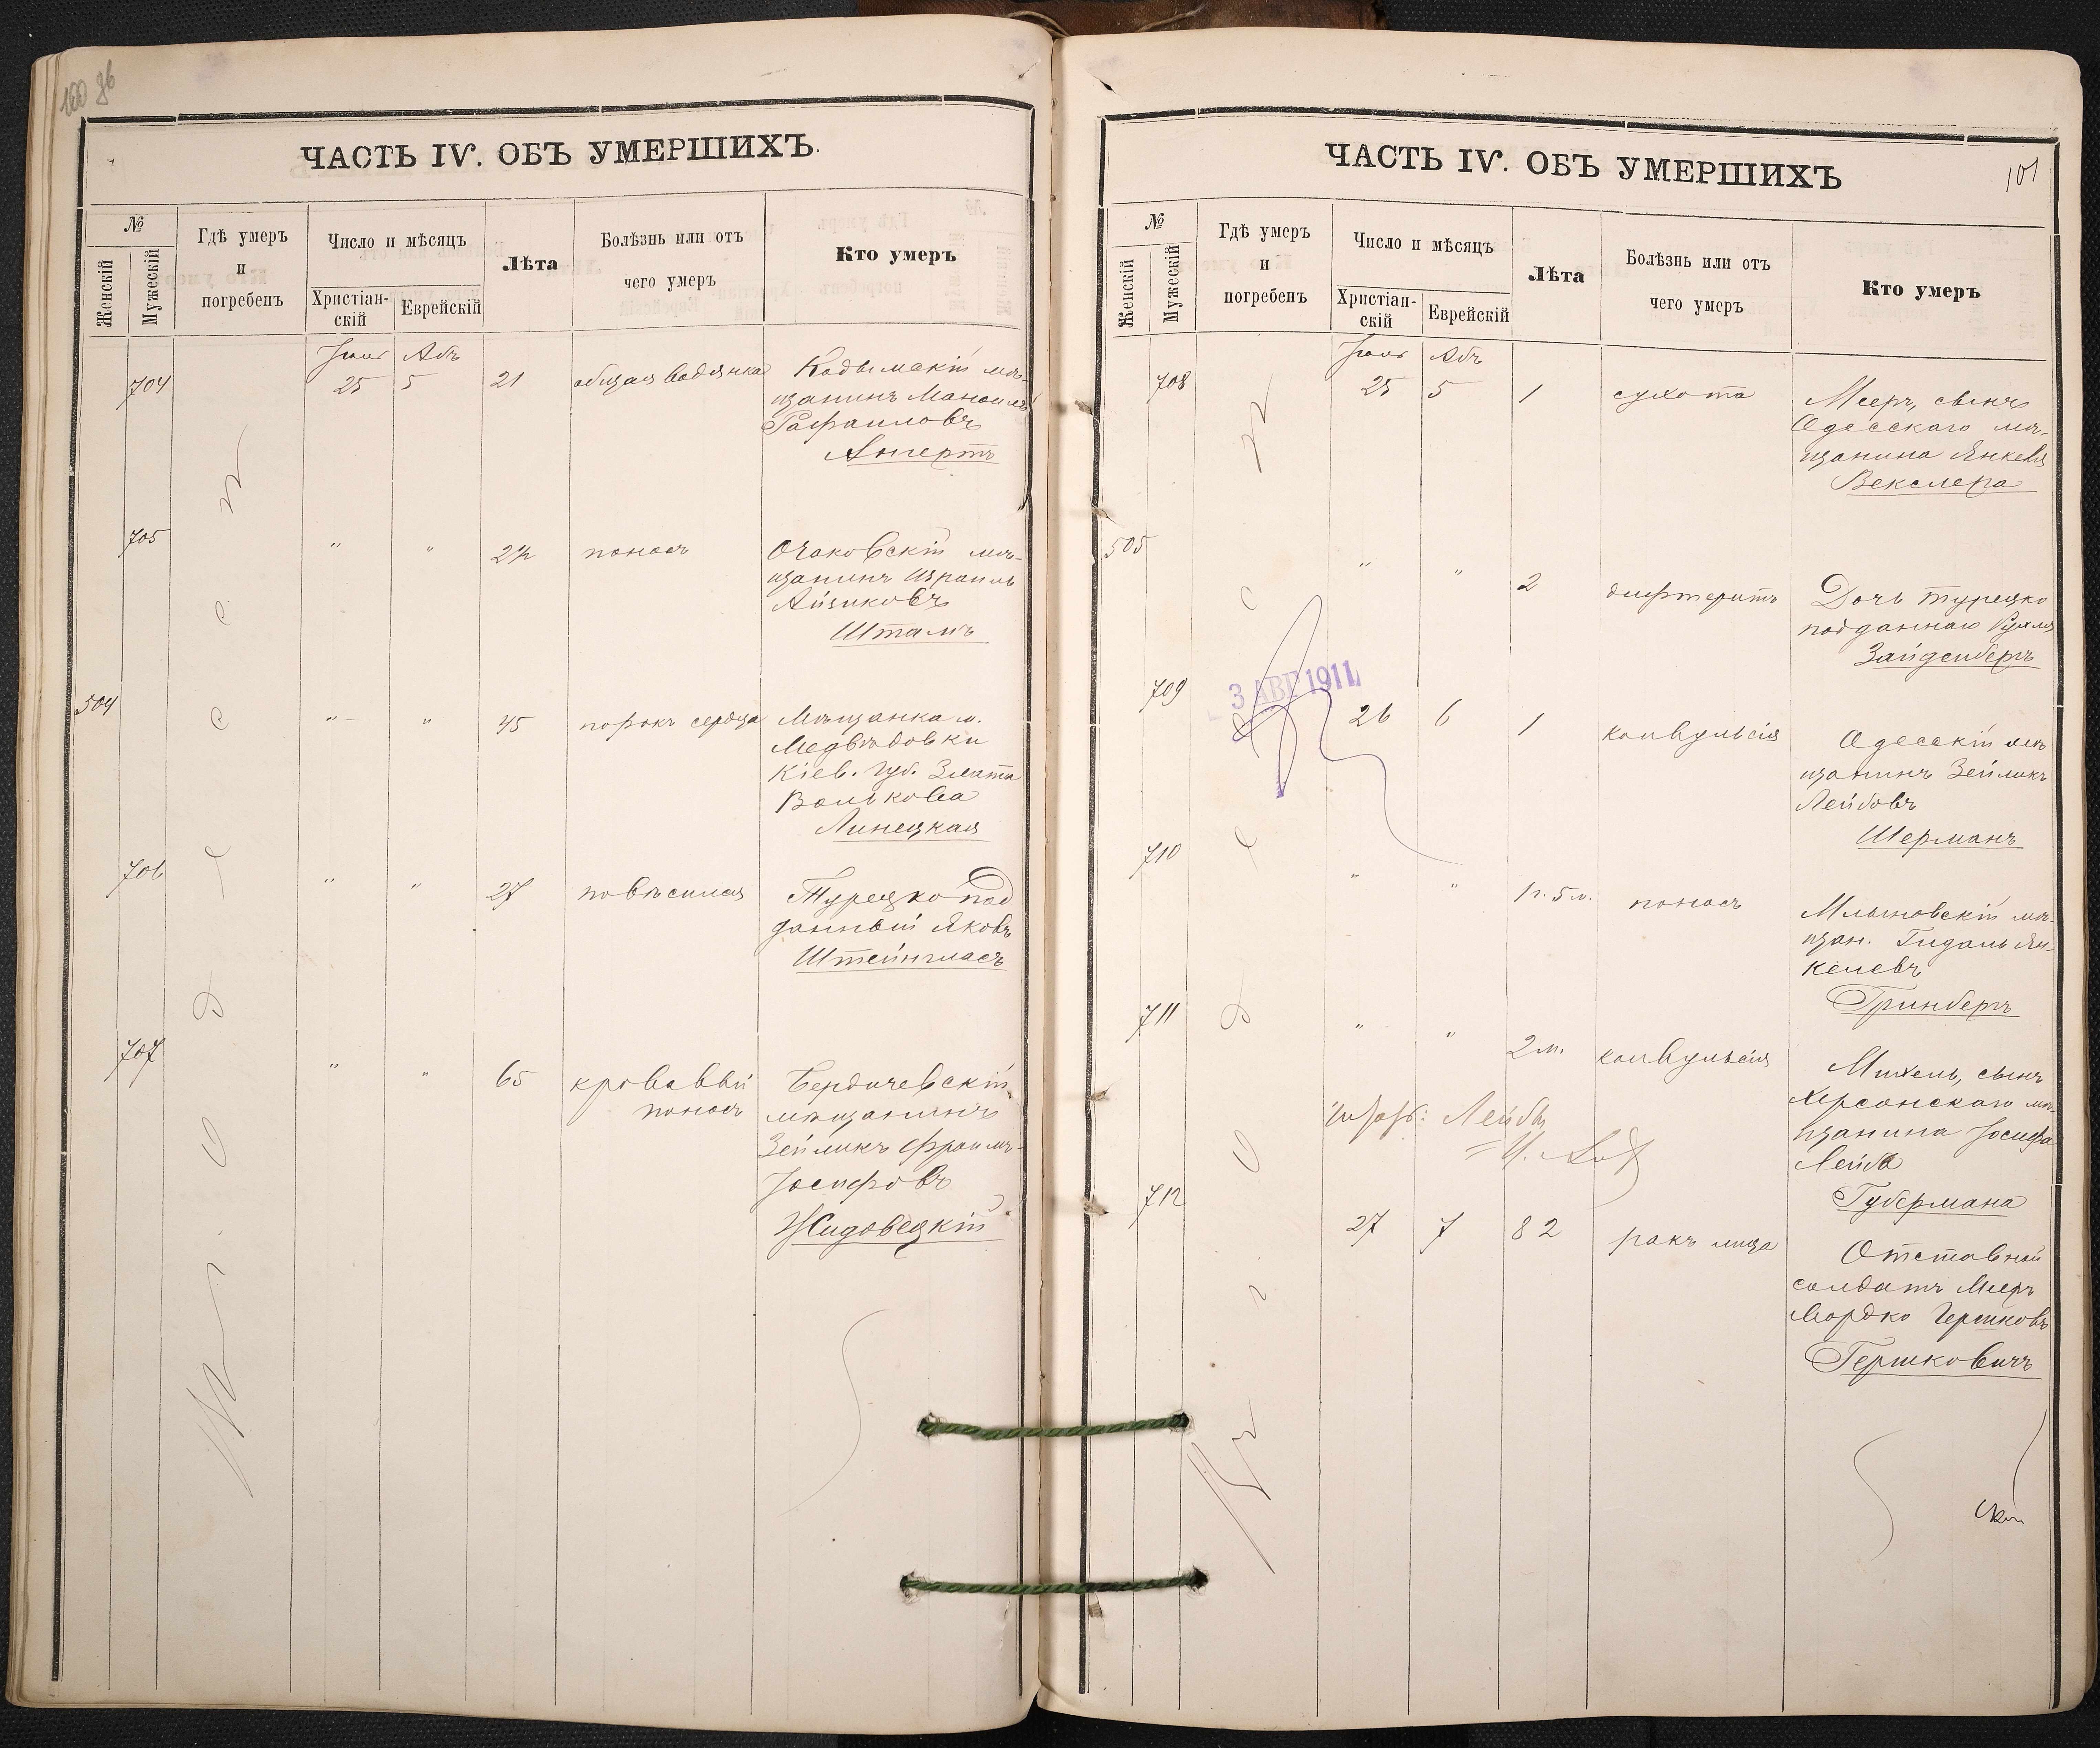 100 об
ЧАСТЬ IV. ОБЪ УМЕРШИХЪ.
№
Женскій
Мужескій
Гдѣ умеръ
и
погребенъ
Число и мѣсяцъ
Христіан-
скій
Еврейскій
Лѣта
Болѣзнь или отъ
чего умеръ
Кто умеръ
Абъ
704 25 5 21 общая водянка Кодымскій мѣ-
щанинъ Манаилъ
Рафаиловъ
705 " " понось Очаковскій мѣ-
щанинъ Израиль
Айзиковъ
Штамъ
504 " " 45 порокъ сердца Мѣщанка м.
Медвѣдовки
Кіев. губ. Злата
Волькова
Линецкая
706 " " 27 повѣсился Турецко под
данный Яковъ
Штейнгласъ
707 " " 65 кровавый Бердичевскій
поносъ мѣщанинъ
Зейликъ Фраимъ-
Іосифовъ
Жидовецкій
ЧАСТЬ IV. ОБЪ УМЕРШИХЪ
101
№
Женскій
Мужескій
Гдѣ умеръ
и
погребенъ
Число и мѣсяцъ
Христіан-
скій
Еврейскій
Лѣта
Болѣзнь или отъ
чего умеръ
Кто умеръ
Абъ
708 25 5 1 сухота Мееръ, сынъ
Одесскаго мѣ-
щанина Янкеля
Векслера
505 " " 2 дифтеритъ Дочь турецко
подданнаго Рухля
Зайденбергъ
3 АВГ 1911
709 26 6 1 конвульсія Одесскій мѣ
щанинъ Зейликъ
Лейбовъ
Шерманъ
710 " " 1 г. 5 м. поносъ Млыновскій мѣ-
щан. Гидаль Ян-
келевъ
Гринбергъ
711 " " 2 м. конвульсія Михель, сынъ
Херсонскаго мѣ-
щанина Іосифа
Лейба
Губермана
Лейбъ
712 27 7 82 ракъ лица Отставной
солдатъ Мееръ
Мордко Гершковъ
Гершковичъ